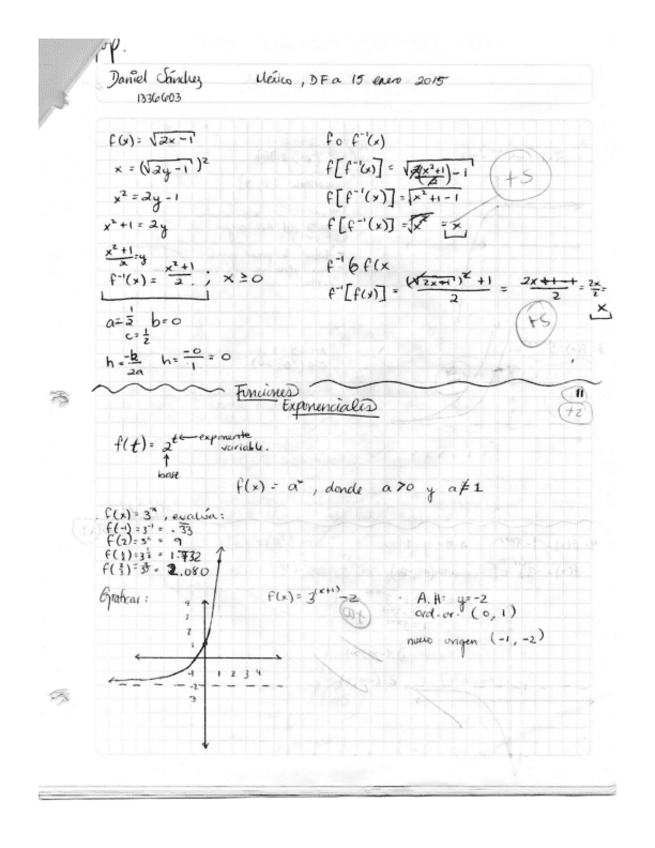 Daniel Sánchez México, DF a 15 enero 2015
1336603
f(x) = √2x-1
x = (√2y-1)²
x² = 2y-1
x²+1 = 2y
x²+1/2 = y
f⁻¹(x) = x²+1/2 ; x ≥ 0
a = 1/2 b = 0
c = 1/2
h = -b/2a h = -0/1 = 0
f o f⁻¹(x)
f[f⁻¹(x)] = √2(x²+1/2)-1
f[f⁻¹(x)] = √x²+1-1
f[f⁻¹(x)] = √x² = x
+5
f⁻¹ o f(x
f⁻¹[f(x)] = (√2x-1)²+1/2 = 2x+1-1/2 = 2x/2 =
x
+5
Funciones
Exponenciales
11
+2
f(t) = 2ᵗ ← exponente
variable.
↑
base
f(x) = aˣ, donde a>0 y a≠1
f(x) = 3ˣ, evalúa:
f(-1) = 3⁻¹ = .33
f(2) = 3² = 9
f(1/2) = 3^1/2 = 1.732
f(2/3) = 3^2/3 = 2.080
Graficar: f(x) = 3^(x+1) -2 - A.H: y=-2
ord.or. (0, 1)
nuevo origen (-1, -2)
+10
4
3
2
1
-1 1 2 3 4
-2
3